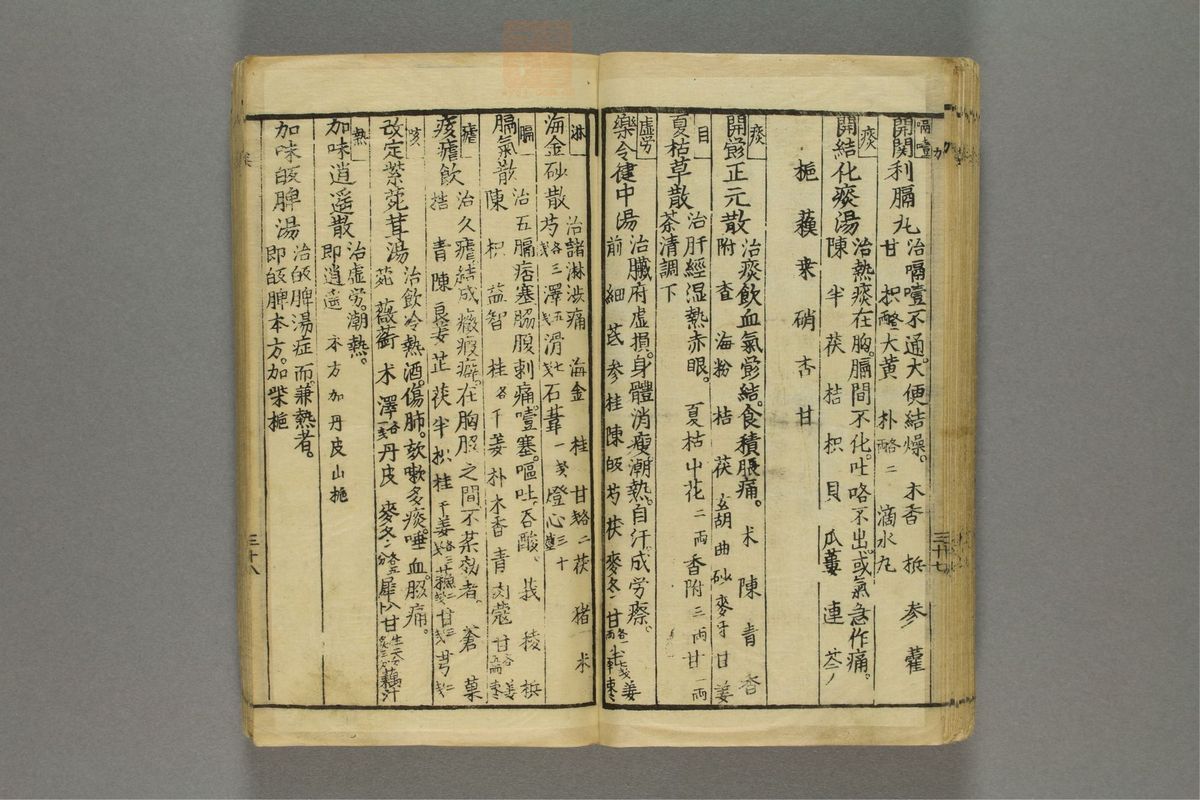 嗝噎
開関利膈丸
治嗝噎不通。大便結燥。 木香 梹 参 藿
甘 枳 大黄 朴 二 滴水丸
痰
開結化痰湯
治熱痰在胸。膈間不化。吐咯不出。或氣急作痛。
陳 半 茯 桔 枳 貝 瓜蔞 連 芩
梔 蘓 桒 硝 杏 甘
痰
開欝正元散
治痰飲血氣欝結。食積脹痛。 朮 陳 青 香
附 査 海粉 桔 茯 玄胡 曲 砂 麥牙 甘 姜
目
夏枯草散
治肝經湿熱赤眼。 夏枯中花二両 香附三両 甘一両
茶清調下
虚労
樂令健中湯
治臓府虚損。身體消瘦。潮熱。自汗。成労瘵。
前 細 茋 参 桂 陳 皈 芍 茯 麥冬 甘 姜 棗
三十七
淋
海金砂散
治諸淋渋痛 海金 桂 甘 二 茯 猪 朮
芍 三 澤 滑 石葦一戋 燈心三十
膈
膈氣散
治五膈痞塞脇腹刺痛。噎塞。嘔吐。呑酸。 莪 稜 梹
陳 枳 益智 桂 干姜 朴 木香 青 肉蔲 甘 姜 棗
瘧
痎瘧飲
治久瘧結成癥瘕癖。在胸腹之間不某効者。 蒼 菓
桔 青 陳 良姜 芷 茯 半 枳 桂 干姜 甘 芎
咳
改定紫菀茸湯
治飲冷熱酒。傷肺。咳嗽多痰。唾血。腹痛。
菀 薇蘅 朮 澤 丹皮 麥冬 犀 甘 藕汁
熱
加味逍遥散
治虚労。潮熱。
即逍遥本方加丹皮山梔
加味皈脾湯
治皈脾湯症而兼熱者。
即皈脾本方。加柴梔
三十八